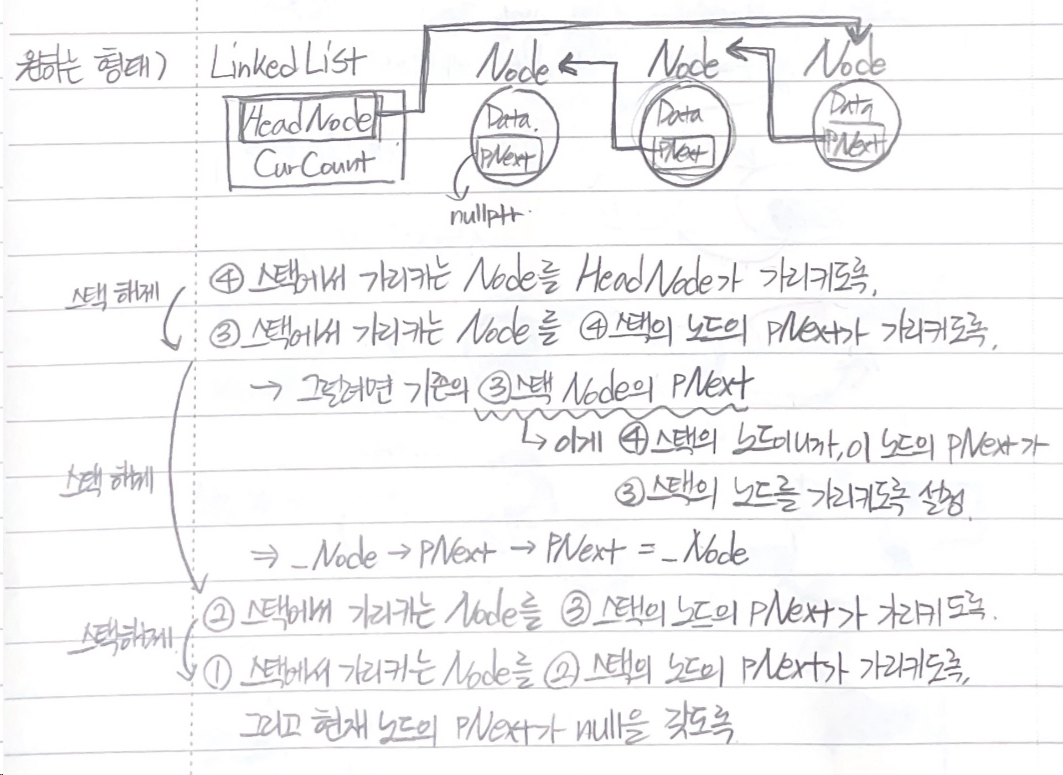 원하는 형태) LinkedList Node Node Node
HeadNode Data. Data Data
CurCount PNext PNext PNext
nullptr.
스택 해제 ④ 스택에서 가리키는 Node를 HeadNode가 가리키도록.
③ 스택에서 가리키는 Node를 ④ 스택의 노드의 pNext가 가리키도록.
→ 그럴려면 기존의 ③스택 Node의 PNext
↳ 이게 ④ 스택의 노드이니까, 이 노드의 pNext가
스택 해제 ③ 스택의 노드를 가리키도록 설정.
⇒ _Node → PNext → PNext = _Node
② 스택에서 가리키는 Node를 ③ 스택의 노드의 pNext가 가리키도록.
스택해제 ① 스택에서 가리키는 Node를 ② 스택의 노드의 pNext가 가리키도록,
그리고 현재 노드의 PNext가 null을 갖도록